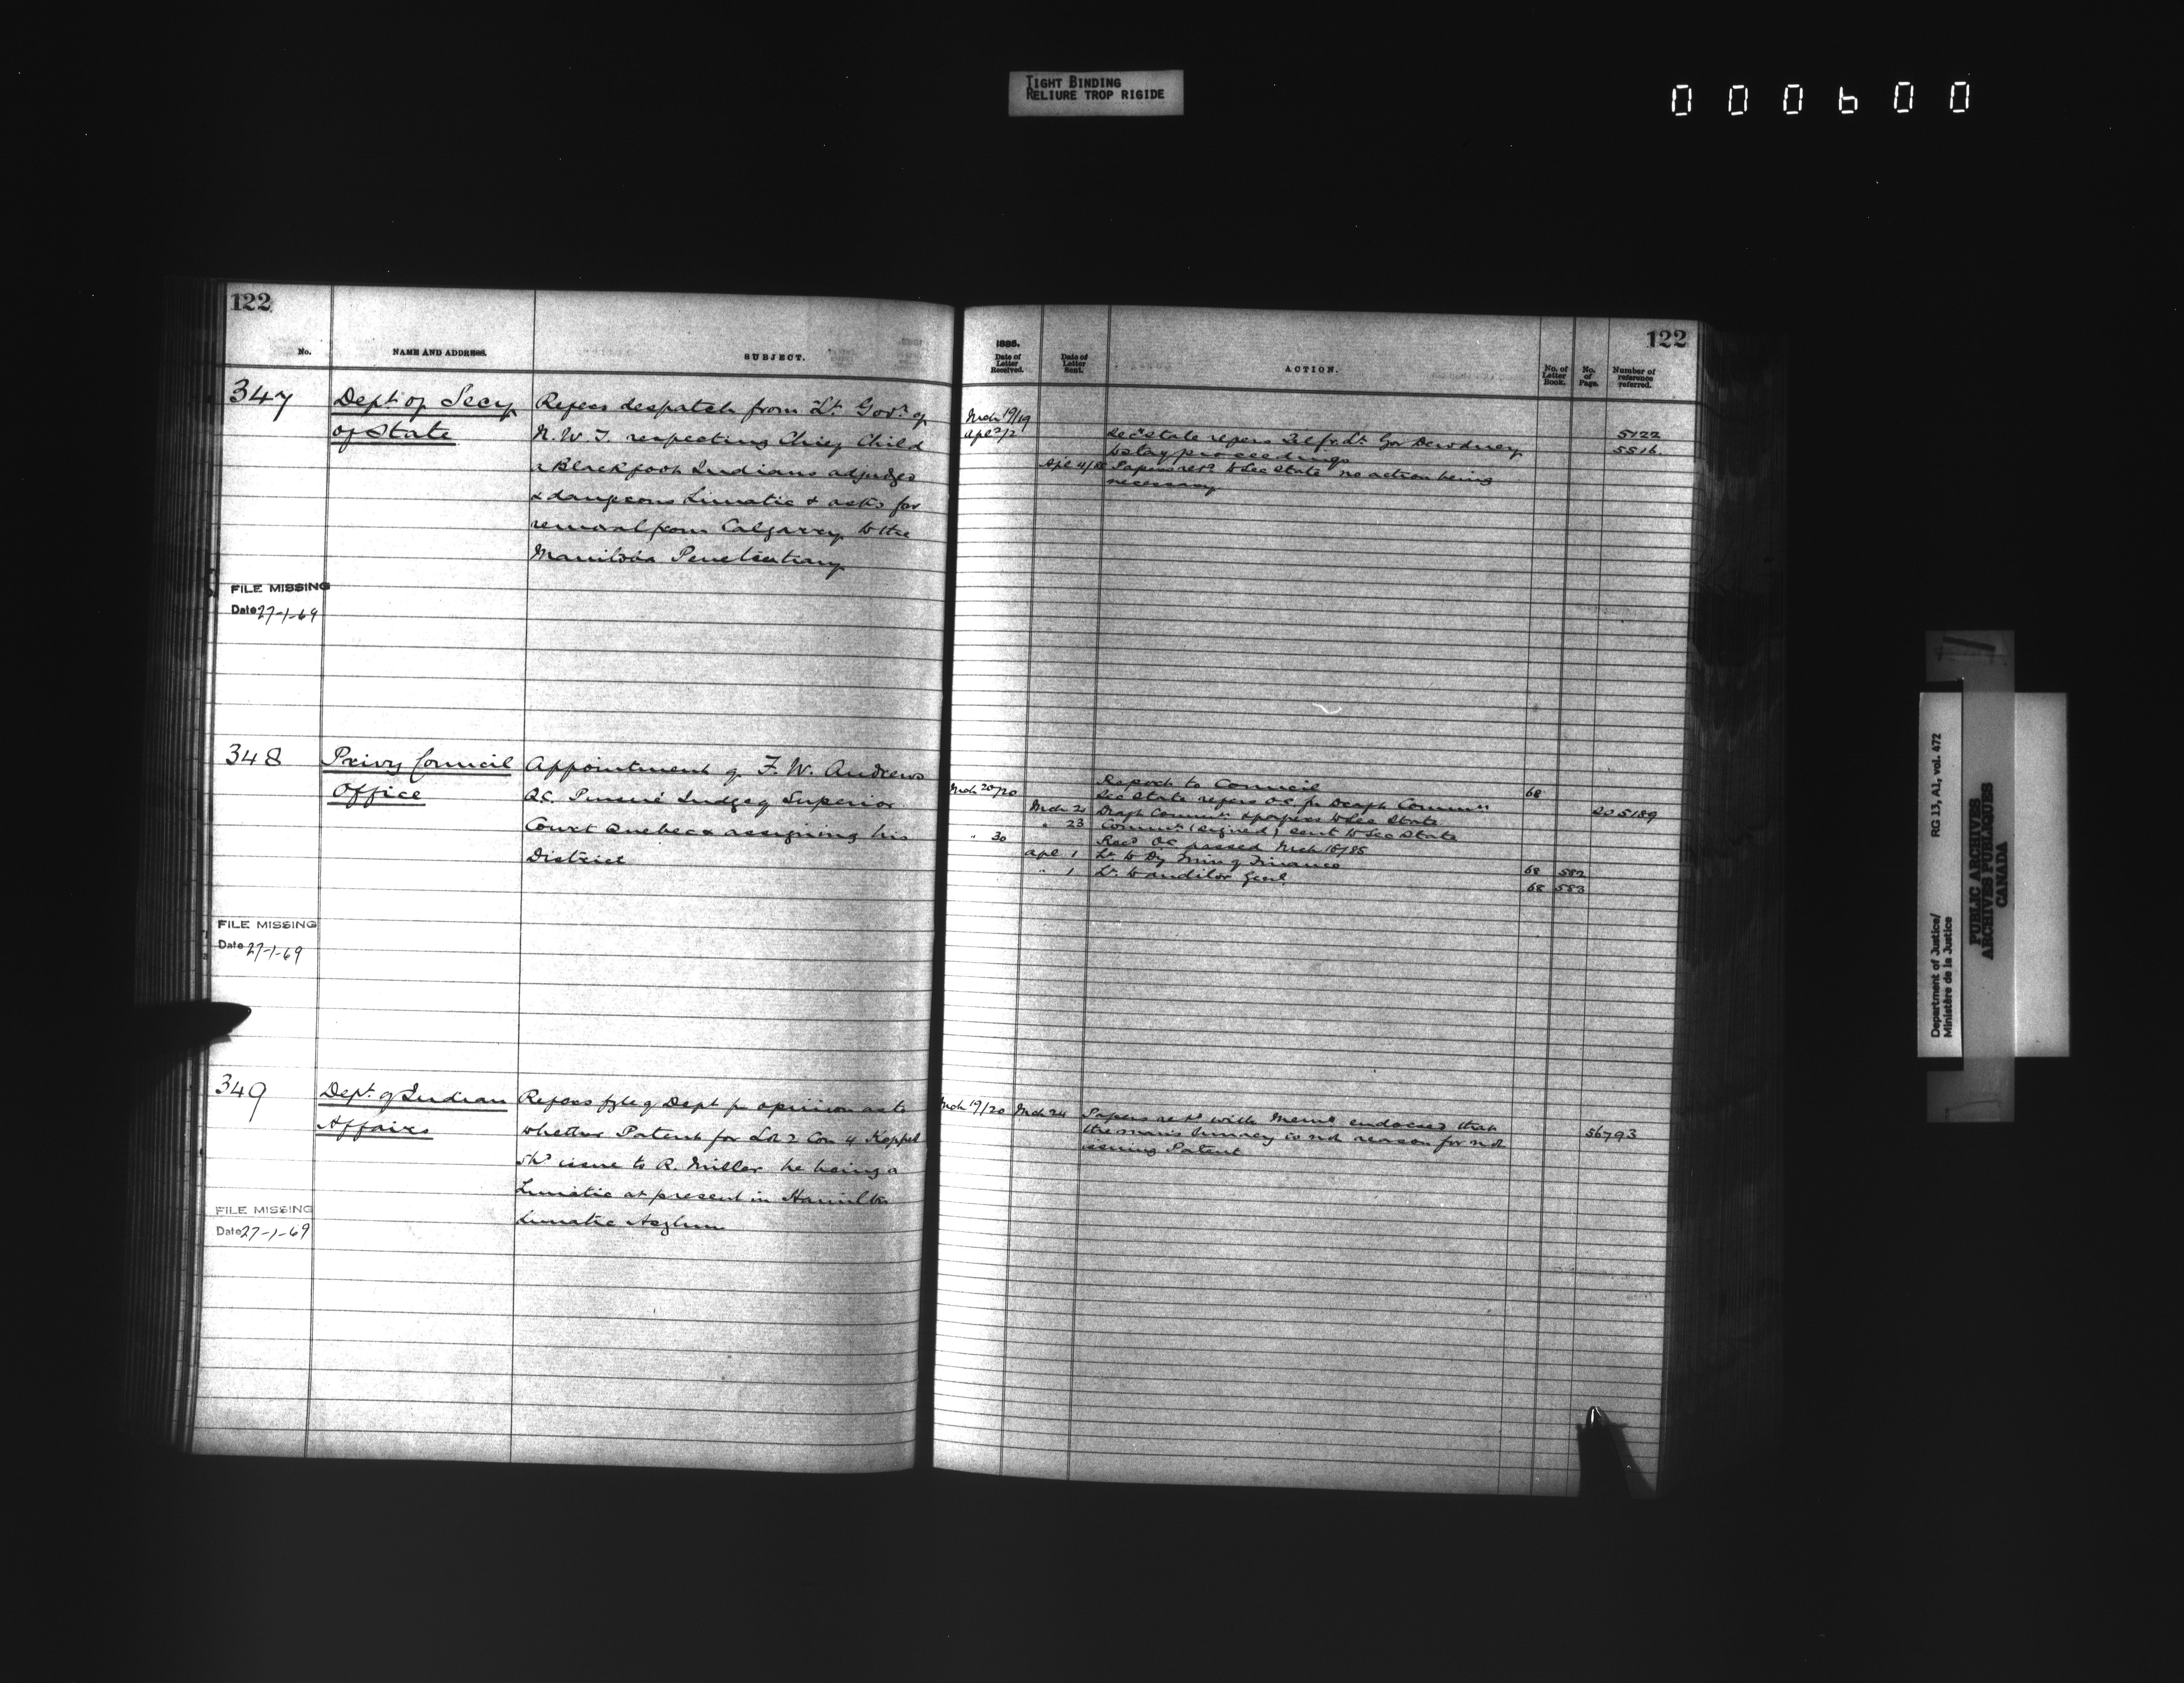 TIGHT BINDING
RELIURE TROP RIGIDE
000600
122
No.
NAME AND ADDRESS.
SUBJECT.
347
Dept. of Secy
of State
Refers despatch from Lt Govr of
N.W.T. respecting Chief Child
a Blackfoot Indians adjudged
a dangerous Lunatic & asks for
removal from Calgarry to the
Manitoba Penetentiary
FILE MISSING
Date 27-1-69
348
Privy Council
Office
Appointment of F. W. Andrews
Q.C. Puisné Judge of Superior
Court Quebec & assigning his
District
FILE MISSING
Date 27-1-69
349
Dept. of Indian
Affairs
Refers fyle of Dept for opinion as to
whether Patent for Lot 2 Con 4 Keppel
shd issue to R. Miller he being a
Lunatic at present in Hamilton
Lunatic Asylum
FILE MISSING
Date 27-1-69
122
1885.
Date of Letter Received.
Date of Letter Sent.
ACTION.
No. of Letter Book.
No. of Page.
Number of reference referred.
Mch 19/19 5122
Apl 2/2 Sec State refers Tel fr. Lt Gov Dewdney 5516
to stay proceedings
Apl 4/85 Papers retd to Sec State no action being
necessary
Report to Council 68
Mch 20/20 Sec State refers O.C. for Draft Commn 5189
Mch 21 Draft Commn & papers to Sec State
" 23 Commn (signed) sent to Sec State
" 30 Recd O.C. passed Mch 18/85
Apl 1 Lr. to Dy Min of Finance 68 582
" 1 Lr. to Auditor Genl. 68 583
Mch 19/20 Mch 24 Papers retd with Memo endorsed that 56793
the man's lunacy is not reason for not
issuing Patent
Department of Justice/
Ministère de la Justice
RG 13, A1, vol. 472
PUBLIC ARCHIVES
ARCHIVES PUBLIQUES
CANADA